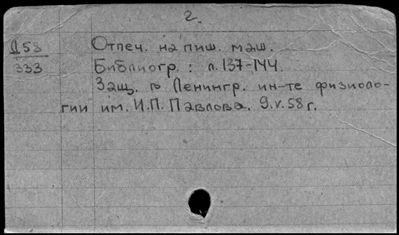 2.
Д53 Отпеч. на пиш. маш.
333 Библиогр.: л. 137-144.
Защ. в Ленингр. ин-те физиоло-
гии им. И.П. Павлова. 9.V.58 г.